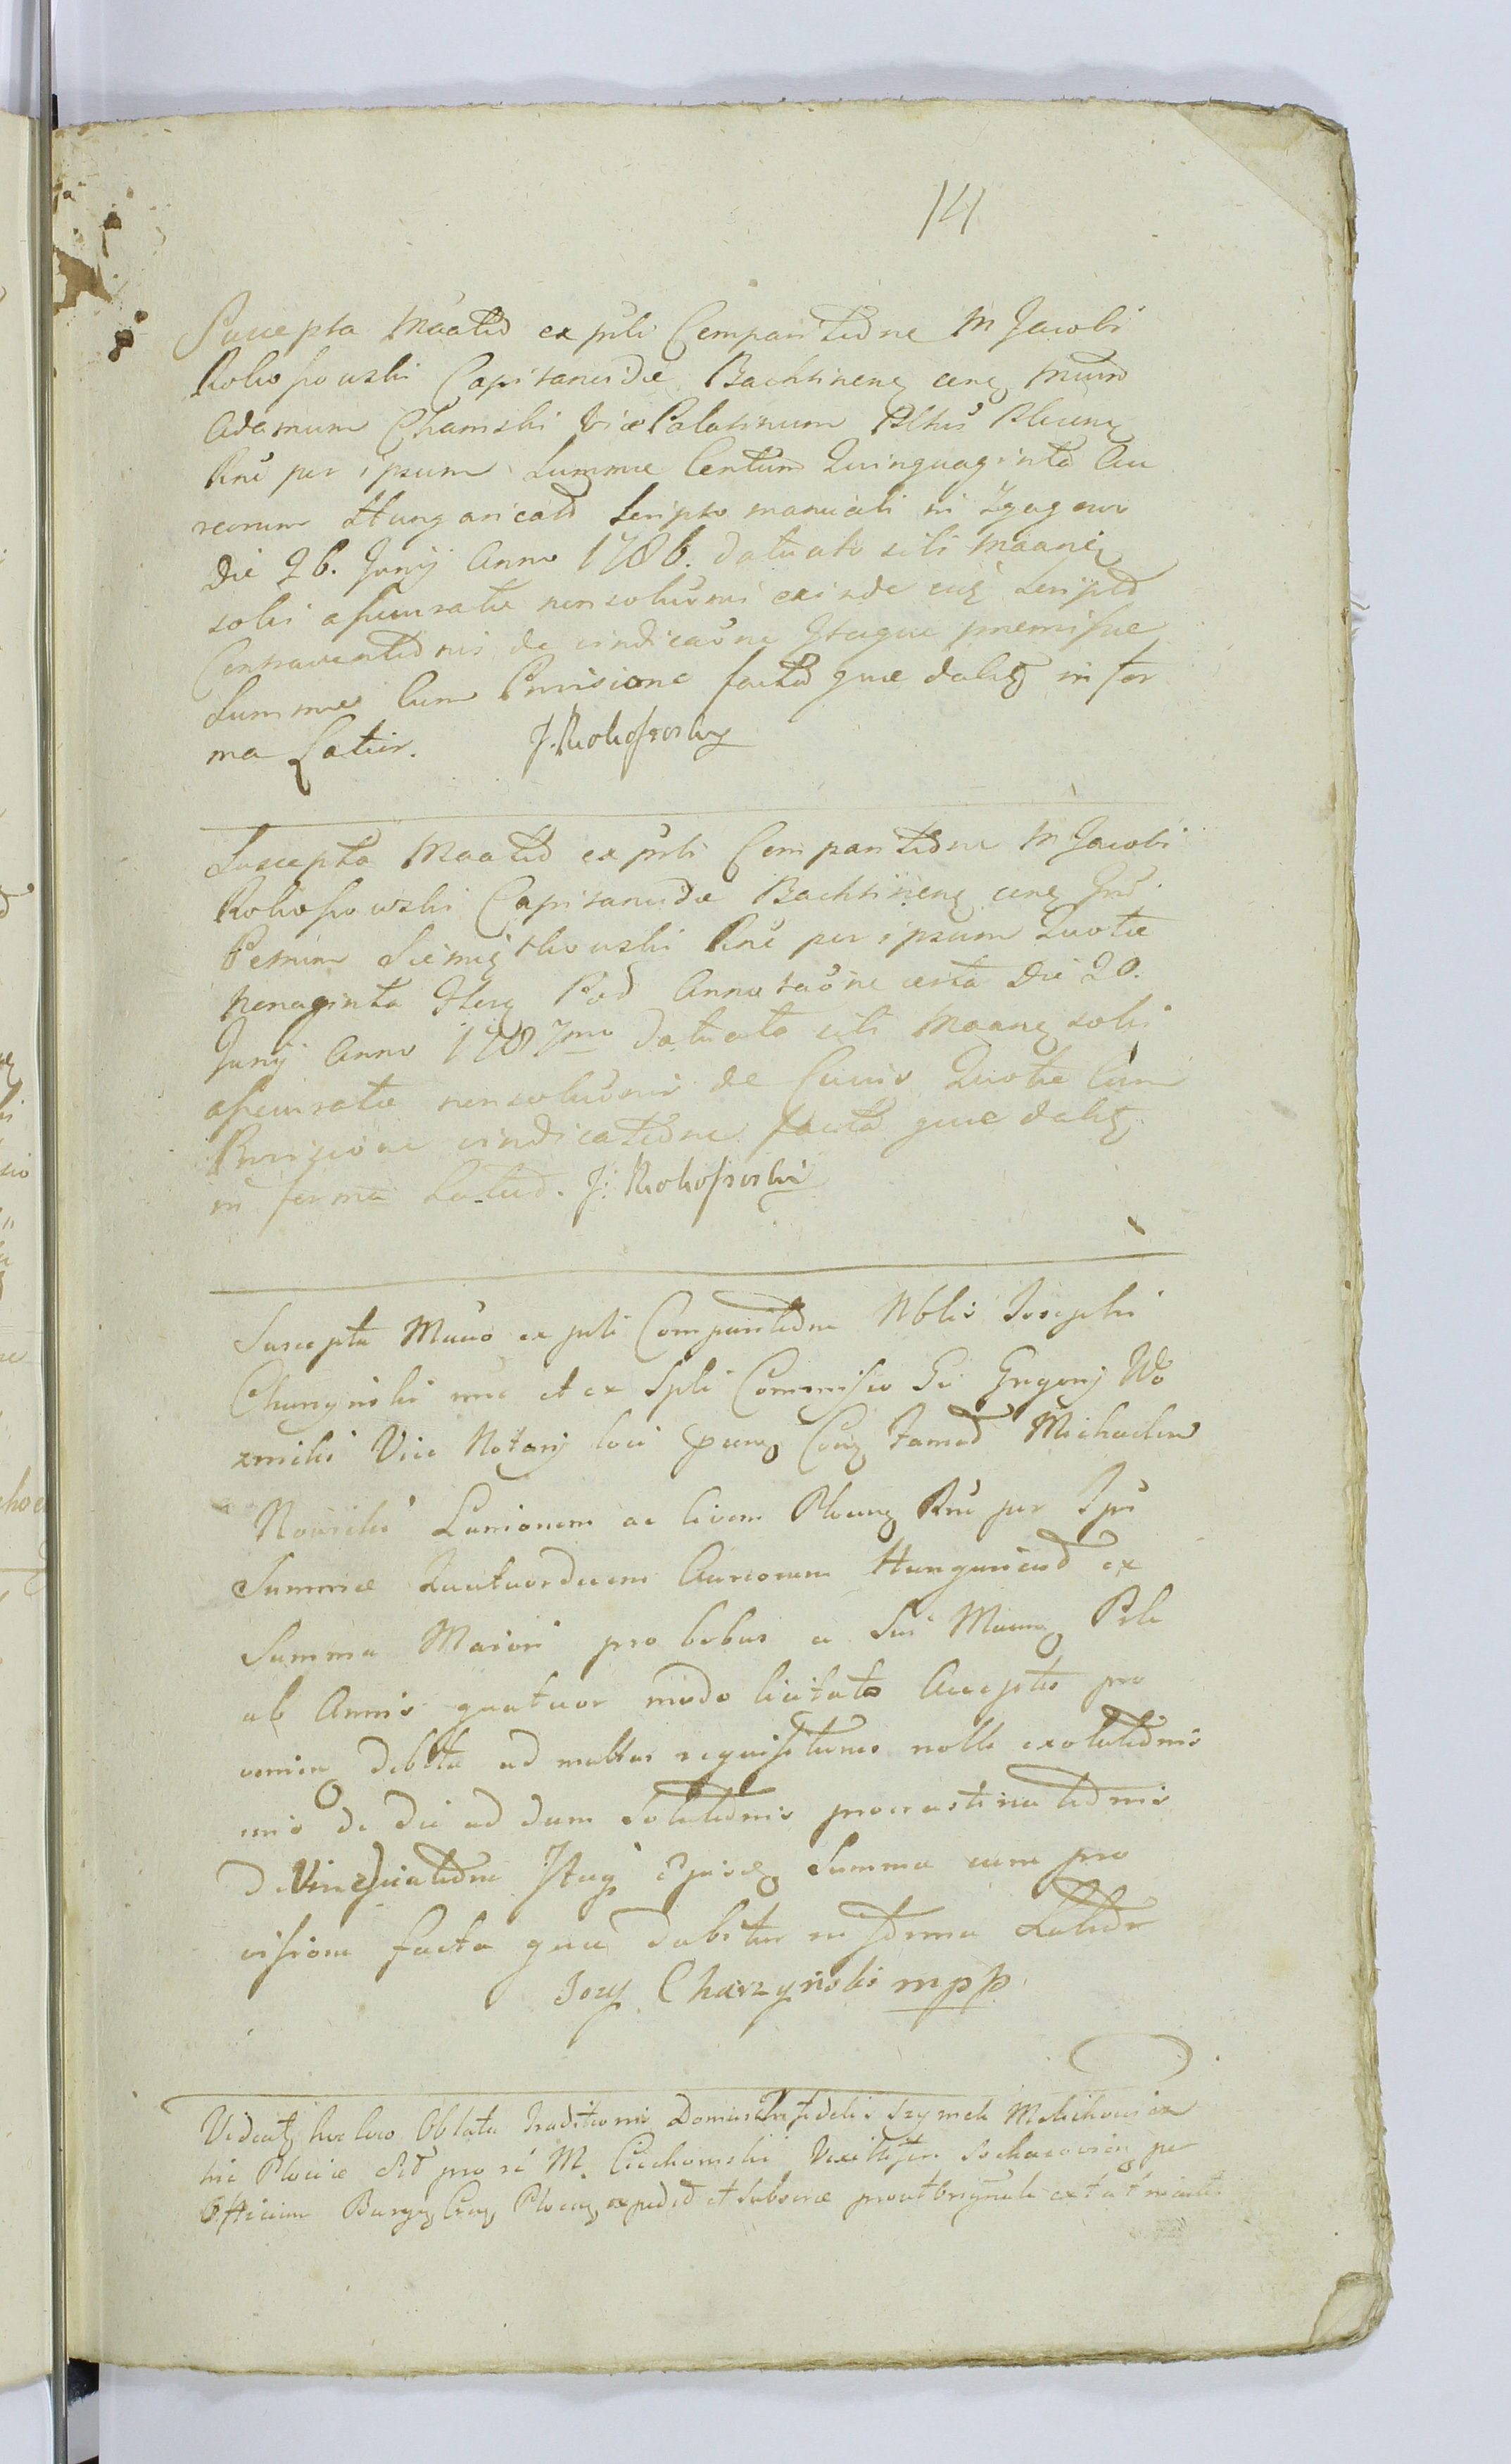 14
Suscepta Maatio ex psti Comparitione M Jacobi
Rokossowski Capitaneidae Bachtinens cens Mum
Adamum Chamski Vice Palatinum Plnus Plocens
Rne per ipsum Summae Centum Quinquaginta Au
reorum Hungaricato Scripto manuali in
Die 26. Junij Anno 1786. datuato sibi Maanti
solvi assecuratae nonsolutionis exinde ejus Scripto
Contraventionis de vindicatione Itaque praemissae
Summae Cum Provisione facta quae dabit in for
ma Latior. J. Rokossowsky
Suscepta Maatio ex psti Comparitione M Jacobi
Rokossowski Capitaneidae Bachtinens cens Gnd
Petrum Siemiątkowski Rne per ipsum Quotae
Nonaginta flens Pod Annotatione certa Die 20.
Junij Anno 1787mo datuata sibi Maans solvi
assecuratae nonsolutionis de Cuius Quotae Cum
Provisione vindicatione facta quae dabit
in forma Latiod. J: Rokossowski
Suscepta Muuo ex psti Comparitione Nblis Josephi
Charzynski nne et ex Spli Commisso Gi Gregorij Wo
znicki Vice Notarij loci Cons Famat Michaelem
Nowicki Lanionem ac Civem Plocens Rne per Ips
Summae Quatuordecim Aureorum Hungaricod ex
Summa Maiori pro bobus a Sui Maans Ptle
ab Annis quatuor modo licitato Acceptis pro
veniens debita ad multas requisitiones nolle exolutionis
imo de die ad diem Solutionis procrastinationis
de Vindicatione Itaq Ejusd Summa cum pro
vissione facta quae dabitur in forma Latiodr
Jozef Charzyński mpp
Videat hoc loco Oblata Traditionis Domus Infidelis Szymek Melichowicz
hic Plociae Sit pro re M. Ciechomski Vexilliferi Sochacovien per
Officium Burgg Cens Plocens expedit et Subscrae prout originale extat